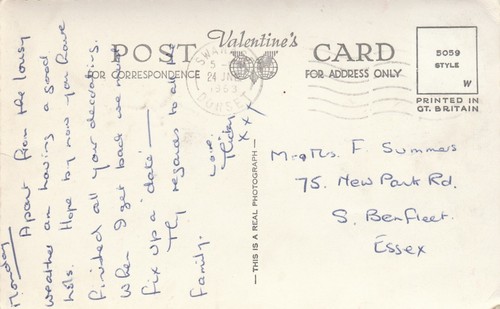 POST Valentine's CARD
FOR CORRESPONDENCE
FOR ADDRESS ONLY
SWANAGE
24 JNE
1963
DORSET
5059
STYLE
W
PRINTED IN
GT. BRITAIN
— THIS IS A REAL PHOTOGRAPH —
Monday
Apart from the lousy
weather am having a good
hols. Hope by now you have
finished all your decorating.
When I get back we must
fix up a 'date'—
My regards to all the
family.
Love,
xxx
Mr & Mrs. F. Summers
75. New Park Rd.
S. Benfleet.
Essex